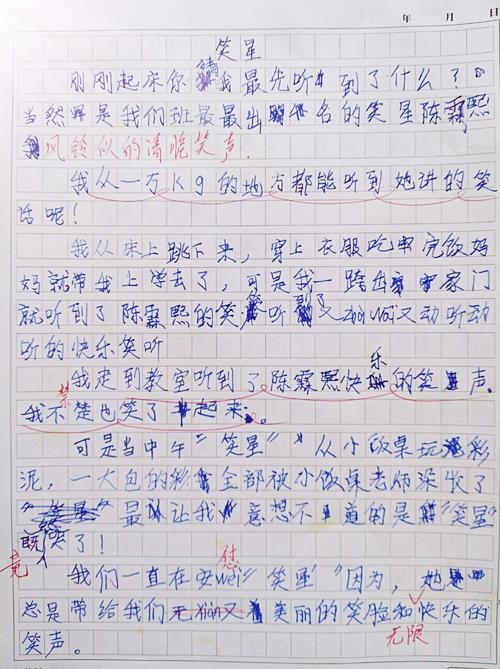 年 月 日
笑星
刚刚起床你猜我最先听到了什么？
当然是我们班最最出名的笑星陈霖熙
风铃似的清脆笑声.
我从一万kg的地方都能听到她讲的笑
话呢！
我从床上跳下来，穿上衣服吃完饭妈
妈就带我上学去了，可是我一跨出家门
就听到了陈霖熙的笑声听了又动听动
听的快乐笑听
我走到教室听到了陈霖熙快乐的笑声
我不禁也笑了起来。
可是当中午“笑星”从小饭桌玩彩
泥，一大包的彩全部被小饭桌老师没收了
最让我意想不道的是“笑星”
竟然哭了！
我们一直在安wei慰“笑星”因为，她
总是带给我们无限美丽的笑脸和快乐的
笑声。